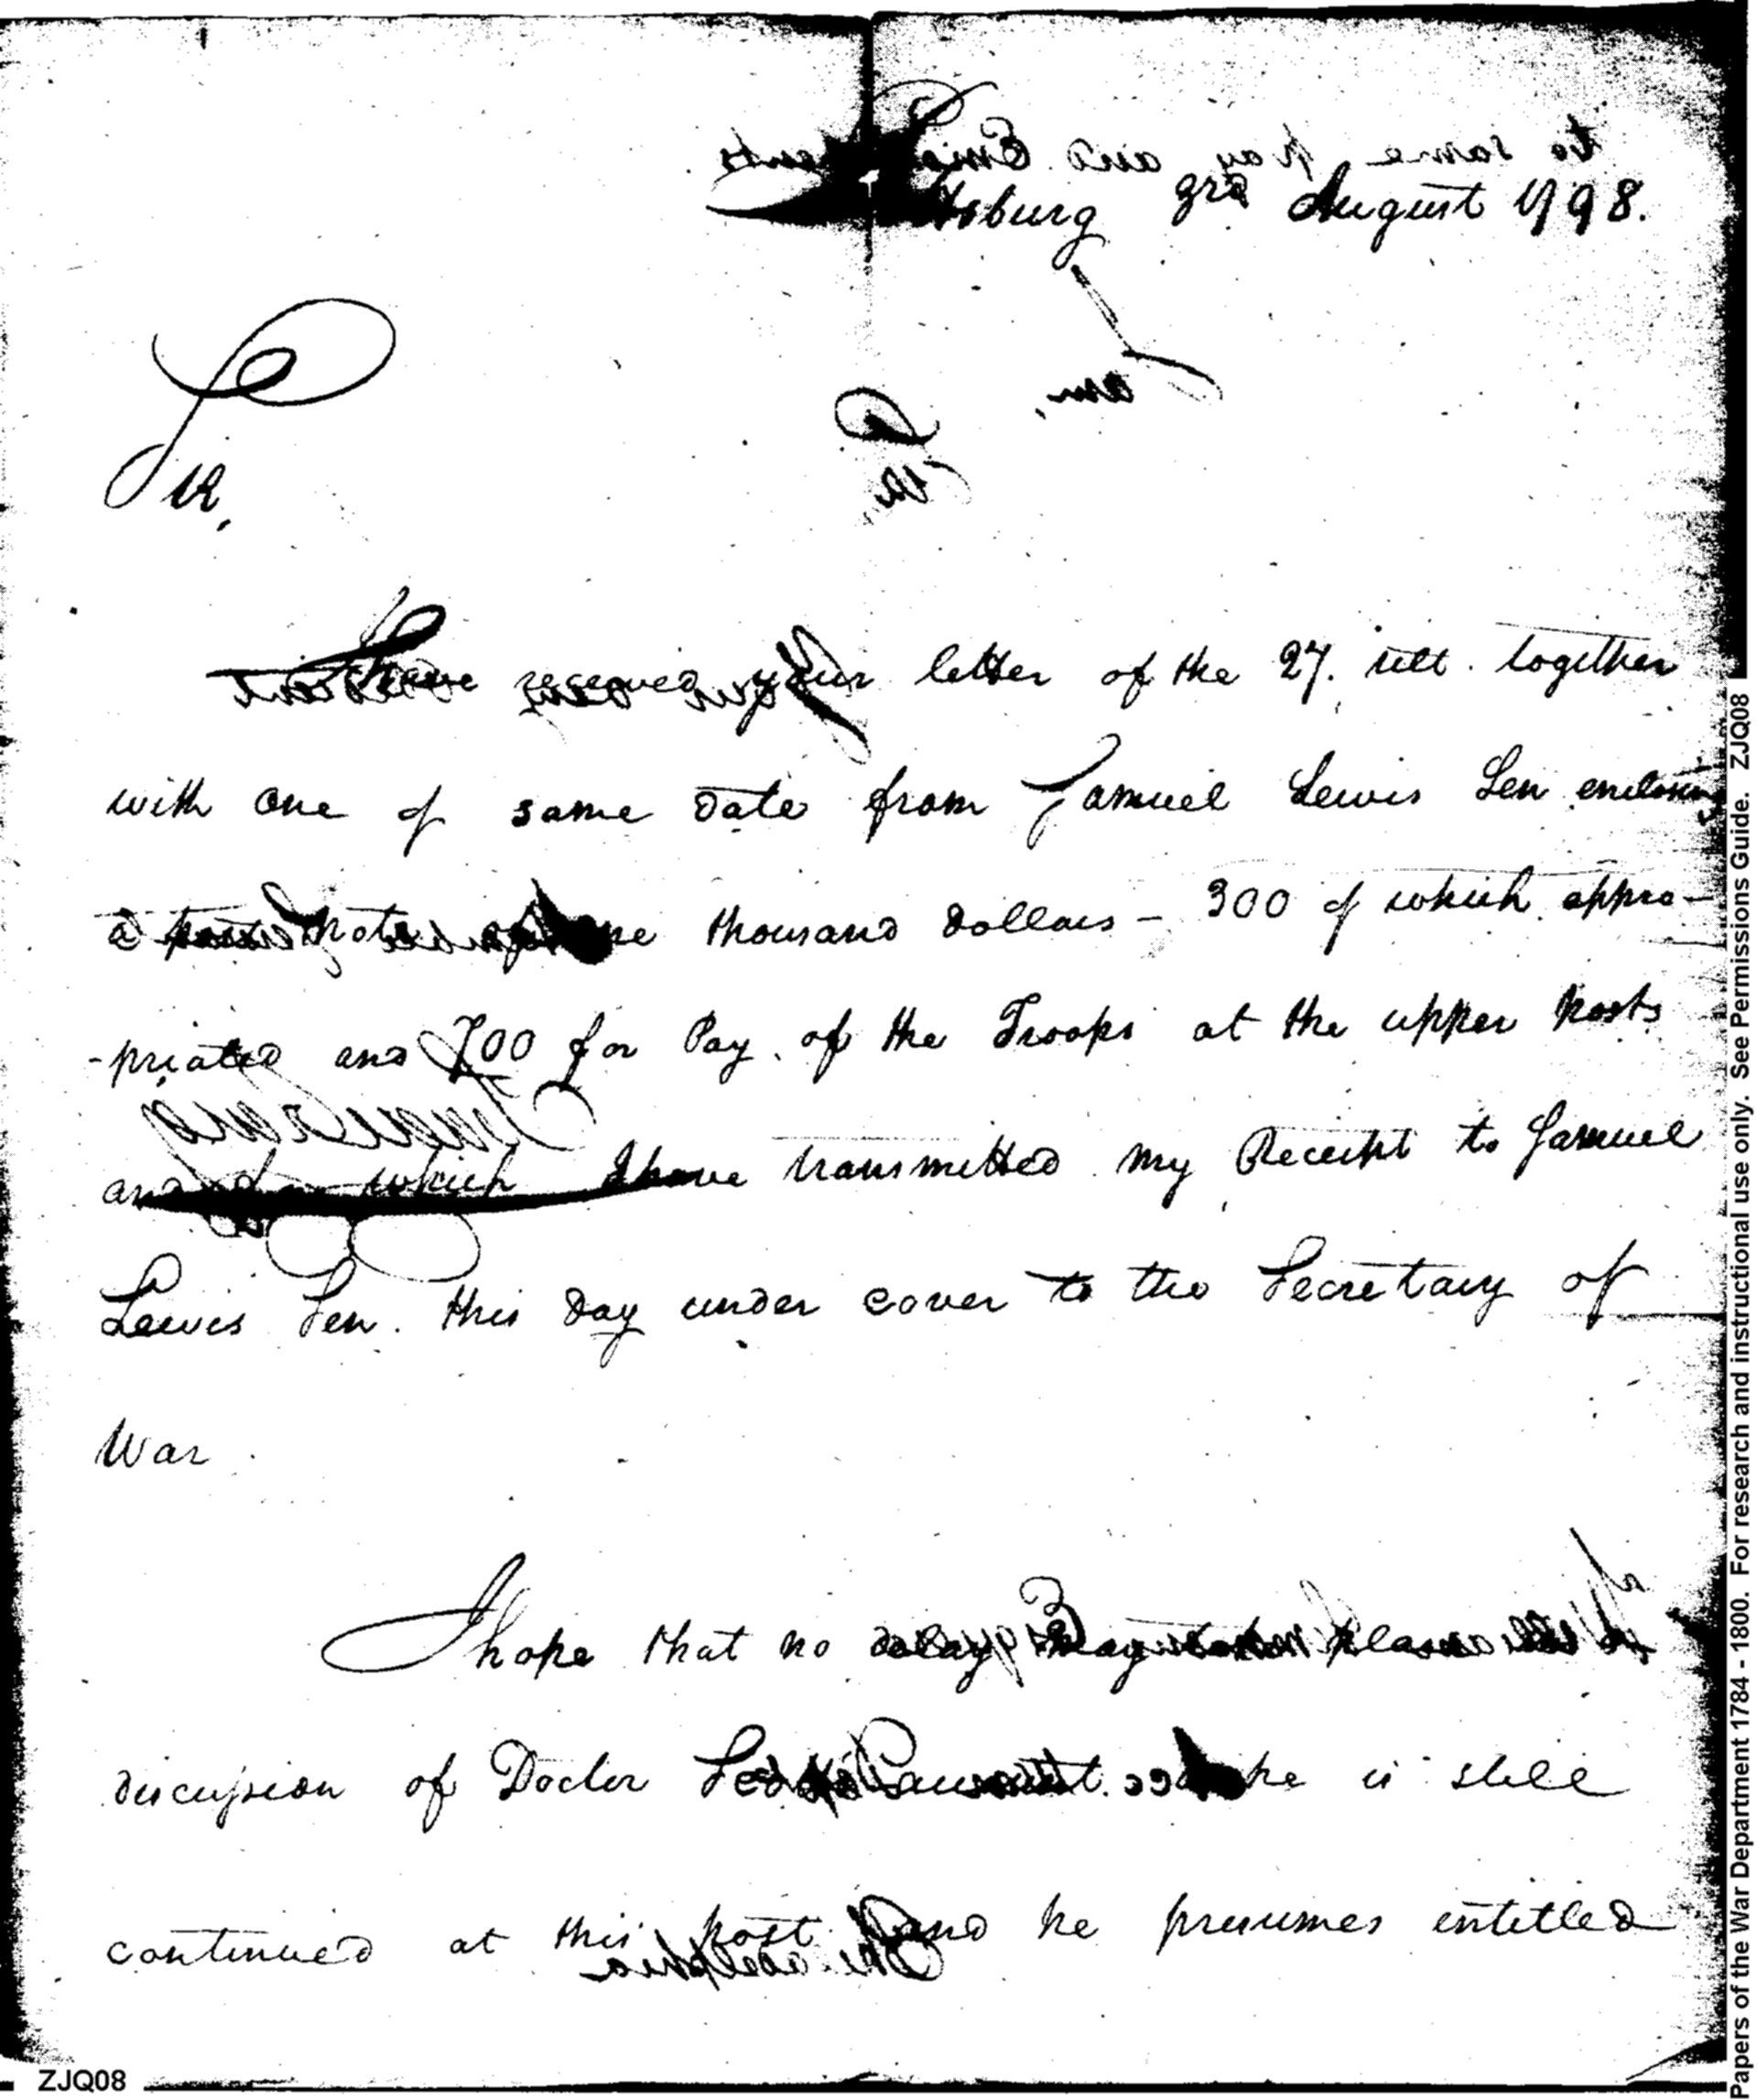 Pittsburg 3rd August 1798.
Sir,
I have received your letter of the 27. ult. together
with one of same date from Samuel Lewis Sen enclosing
a post note of one thousand Dollars - 300 of which appro-
-priated and 700 for Pay of the Troops at the upper posts
and for which I have transmitted my Receipt to Samuel
Lewis Sen. this day under cover to the Secretary of
War.
I hope that no delay may take place
discussion of Doctor he is still
continued at this post and he presumes entitled
to same pay and Emoluments
I am,
Sir,
Philadelphia
ZJQ08
Papers of the War Department 1784 - 1800. For research and instructional use only. See Permissions Guide. ZJQ08